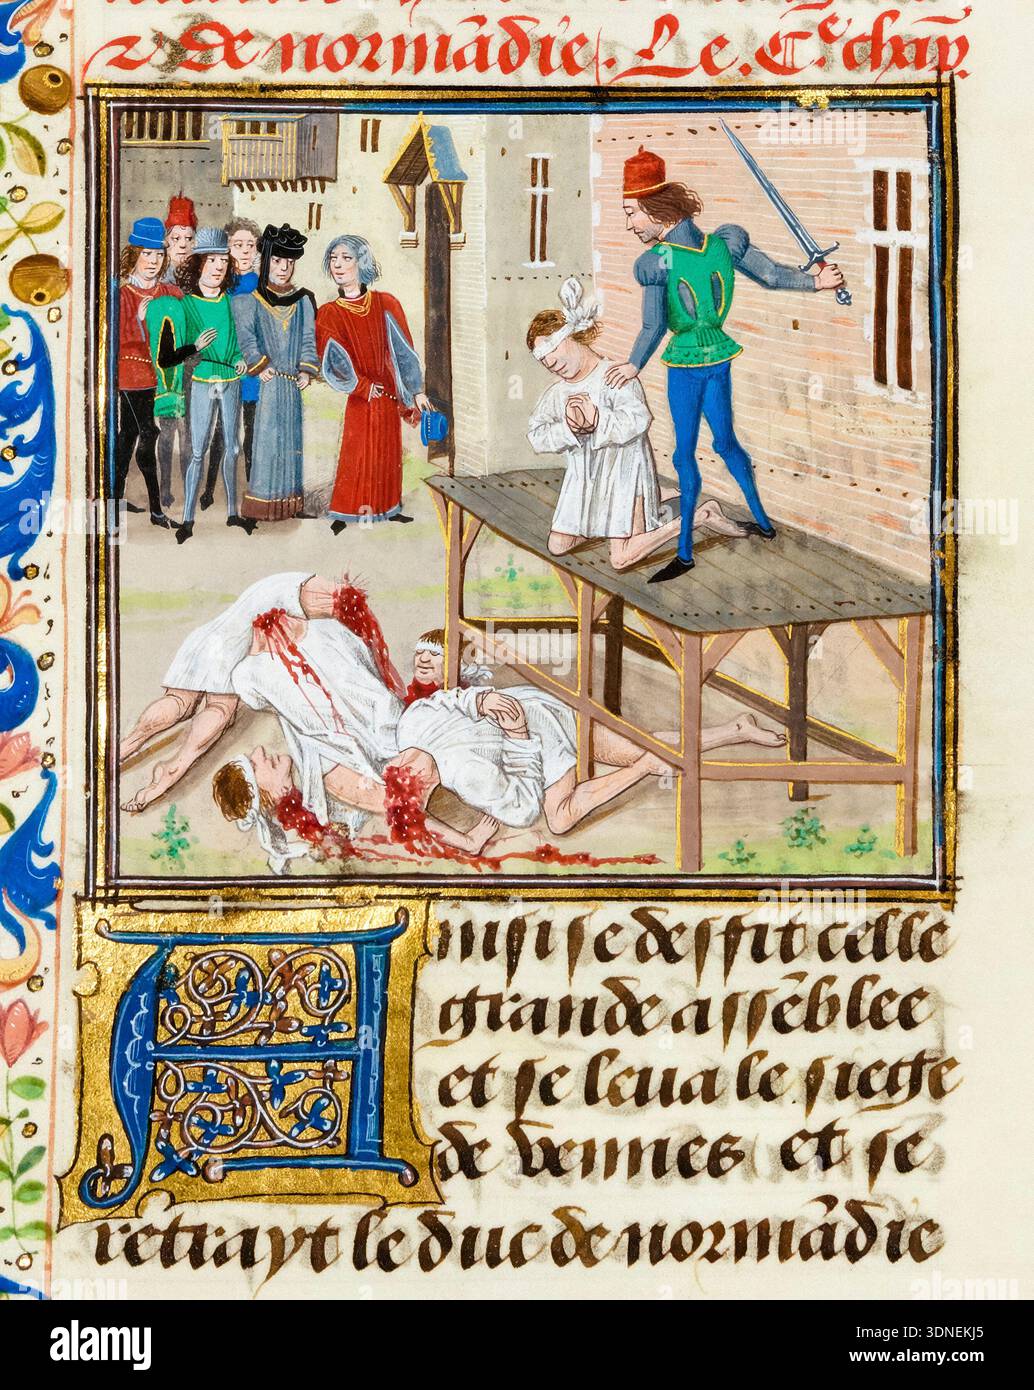 ⁊ de normãdie. Le. C.e chap.
Ainsi se deffit celle
grande assẽblee
et se leua le siege
de vennes et se
retrayt le duc de normãdie
alamy
Image ID: 3DNEKJ5
www.alamy.com